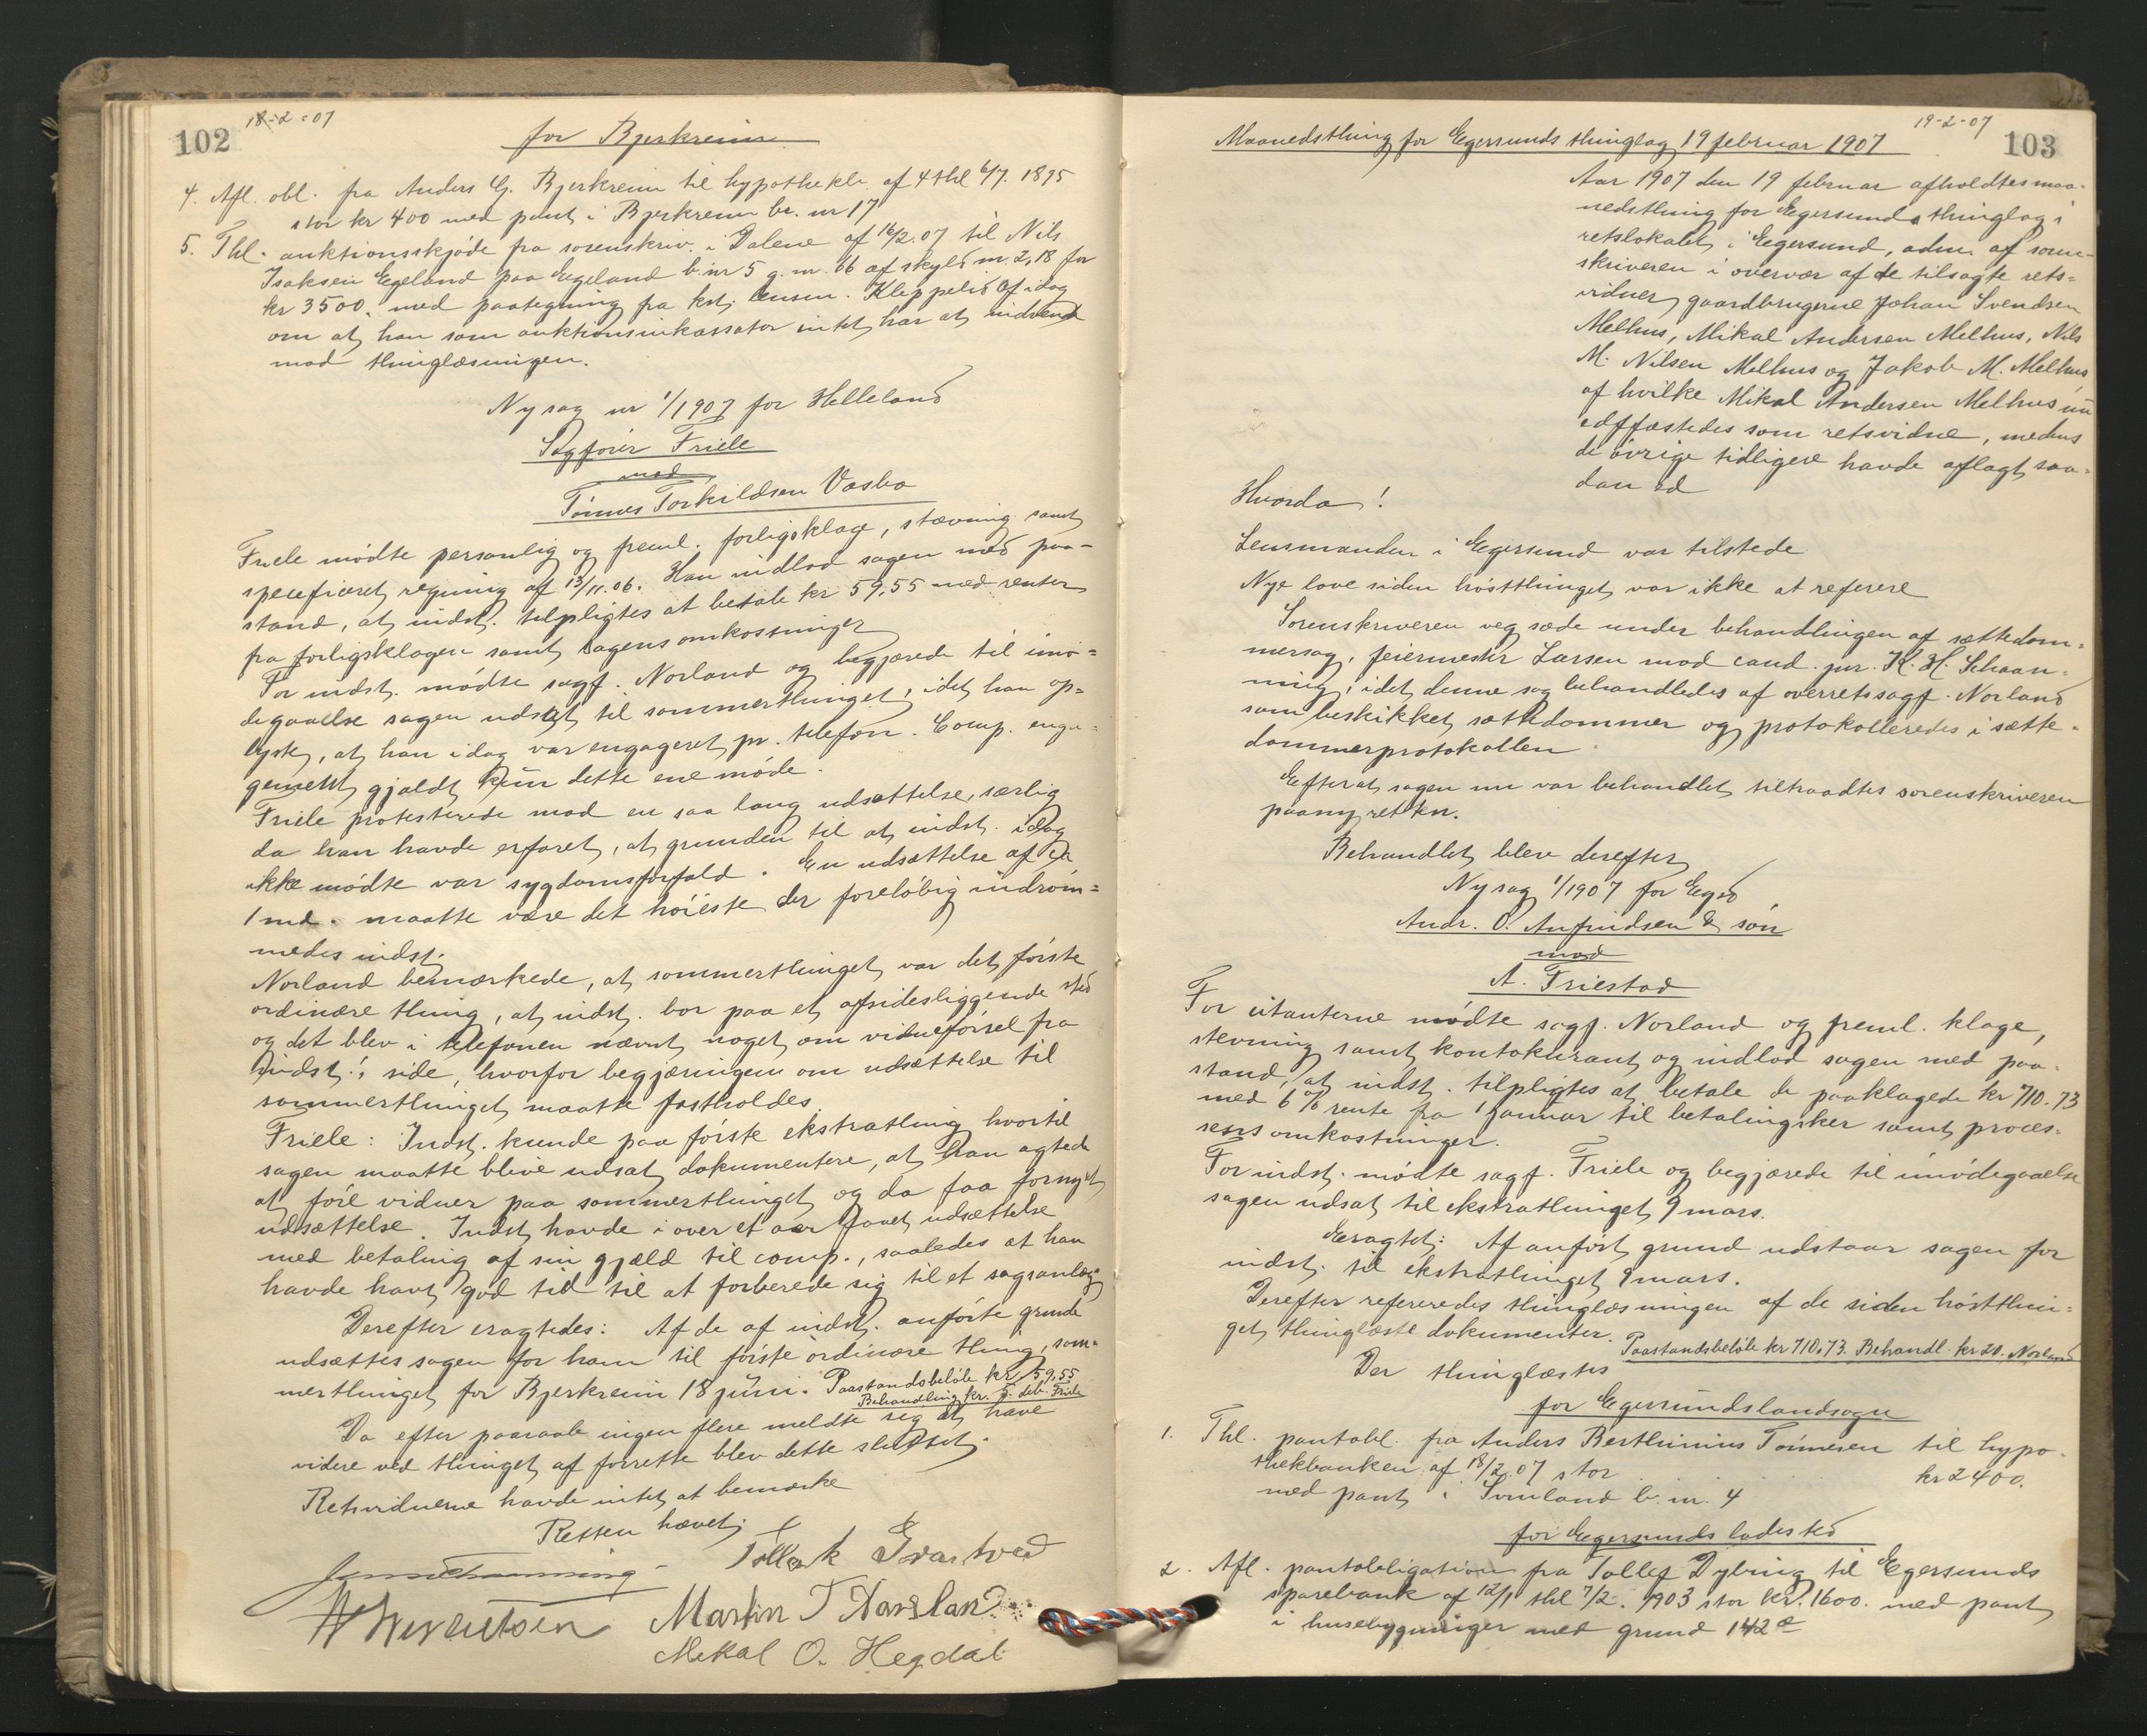 102
18-2-07
for Bjerkreim
4. Afl. obl. fra Anders G. Bjerkreim til hypothekb. af 4 thl 6/7. 1895
stor kr 400 med pant i Bjerkreim br. nr 17
5. Thl. auktionsskjøde fra sorenskriv. i Dalene af 16/2.07 til Nils
Isaksen Egeland paa Egeland b. nr 5 g. nr. 66 af skyld m. 2,18 for
kr 3500. med paategning fra kst. lensm. Kleppelid af idag
om at han som auktionsinkassator intet har at indvende
mod thinglæsningen.
Ny sag nr 1/1907 for Helleland
Sagfører Friele
mod
Tønnes Torkildsen Vasbø
Friele mødte personlig og freml. forligsklage, stævning samt
speceficeret regning af 13/11.06. Han indlod sagen med paa-
stand, at indst. tilpligtes at betale kr 59,55 med renter
fra forligsklagen samt sagens omkostninger
For indst. mødte sagf. Norland og begjærede til imø=
degaaelse sagen udsat til sommerthinget, idet han op=
lyste, at han idag var engageret pr. telefon. Comp. enga=
gement gjaldt kun dette ene møde.
Friele protesterede mod en saa lang udsættelse, særlig
da han havde erfaret, at grunden til at indst. idag
ikke mødte var sygdomsforfald. En udsættelse af ca
1 md. maatte være det høieste der foreløbig indrøm=
medes indst.
Norland bemærkede, at sommerthinget var det første
ordinære thing, at indst. bor paa et afsidesliggende sted
og det blev i telefonen nævnt noget om vidneførsel fra
indst.s side, hvorfor begjæringen om udsættelse til
sommerthinget maatte fastholdes
Friele: Indst. kunde paa første ekstrathing hvortil
sagen maatte blive udsat dokumentere, at han agtede
at føre vidner paa sommerthinget og da faa fornyet
udsættelse. Indst. havde i over et aar faaet udsættelse
med betaling af sin gjæld til comp., saaledes at han
havde havt god tid til at forberede sig til et sagsanlæg
Derefter eragtedes: Af de af indst. anførte grunde
udsættes sagen for ham til første ordinære thing, som=
merthinget for Bjerkreim 18 juni. Paastandsbeløb kr 59,55
Behandling kr. 5. deb. Friele
Da efter paaraab ingen flere meldte sig at have
videre ved thinget af forrette blev dette sluttet.
Retsvidnerne havde intet at bemærke
Retten hævet.
Tollak Svartved
Martin T
Mikal O. Hegdal
19-2-07
103
Maanedsthing for Egersunds thinglag 19 februar 1907
Aar 1907 den 19 februar afholdtes maa-
nedsthing for Egersunds thinglag i
retslokalet i Egersund, adm. af soren-
skriveren i overvær af de tilsagte rets=
vidner, gaardbrugerne Johan Svendsen
Melhus, Mikal Andersen Melhus, Nils
M. Nilsen Melhus og Jakob M. Melhus,
af hvilke Mikal Andersen Melhus nu
edffæstedes som retsvidne, medens
de øvrige tidligere havde aflagt saa=
dan ed
Hvorda!
Lensmanden i Egersund var tilstede
Nye love siden høstthinget var ikke at referere
Sorenskriveren veg sæde under behandlingen af sættedom=
mersag, feiermester Larsen mod cand. jur. K. H. Schaan=
ning, idet denne sag behandledes af overretssagf. Norland
som beskikket sættedommer og protokolleredes i sætte=
dommerprotokollen
Efterat sagen nu var behandlet tiltraadtes sorenskriveren
paany retten.
Behandlet blev derefter
Ny sag 1/1907 for Egersd
Andr. O. Anfindsen & søn
mod
A. Friestad
For citanterne mødte sagf. Norland og freml. klage,
stevning samt kontokurant og indlod sagen med paa-
stand, at indst. tilpligtes at betale de paaklagede kr 710.73
med 6% rente fra 1 januar til betaling sker samt proces=
sens omkostninger.
For indst. mødte sagf. Friele og begjærede til imødegaaelse
sagen udsat til ekstrathinget 9 mars.
Eragtet: Af anført grund udstaar sagen for
indst. til ekstrathinget 9 mars.
Derefter refereredes thinglæsningen af de siden høstthin=
get thinglæste dokumenter. Paastandsbeløb kr 710,73. Behandl. kr 20. Norland
Der thinglæstes
for Egersundslandsogn
1. Thl. pantobl. fra Anders Berthinius Tønnesen til hypo-
thekbanken af 18/2.07 stor kr 2400.
med pant i b. nr. 4
for Egersunds ladested
2. Afl. pantobligation fra Tollef Dybing til Egersunds
sparebank af 12/1 thl 7/2. 1903 stor kr. 1600. med pant
i husebygninger med grund 142